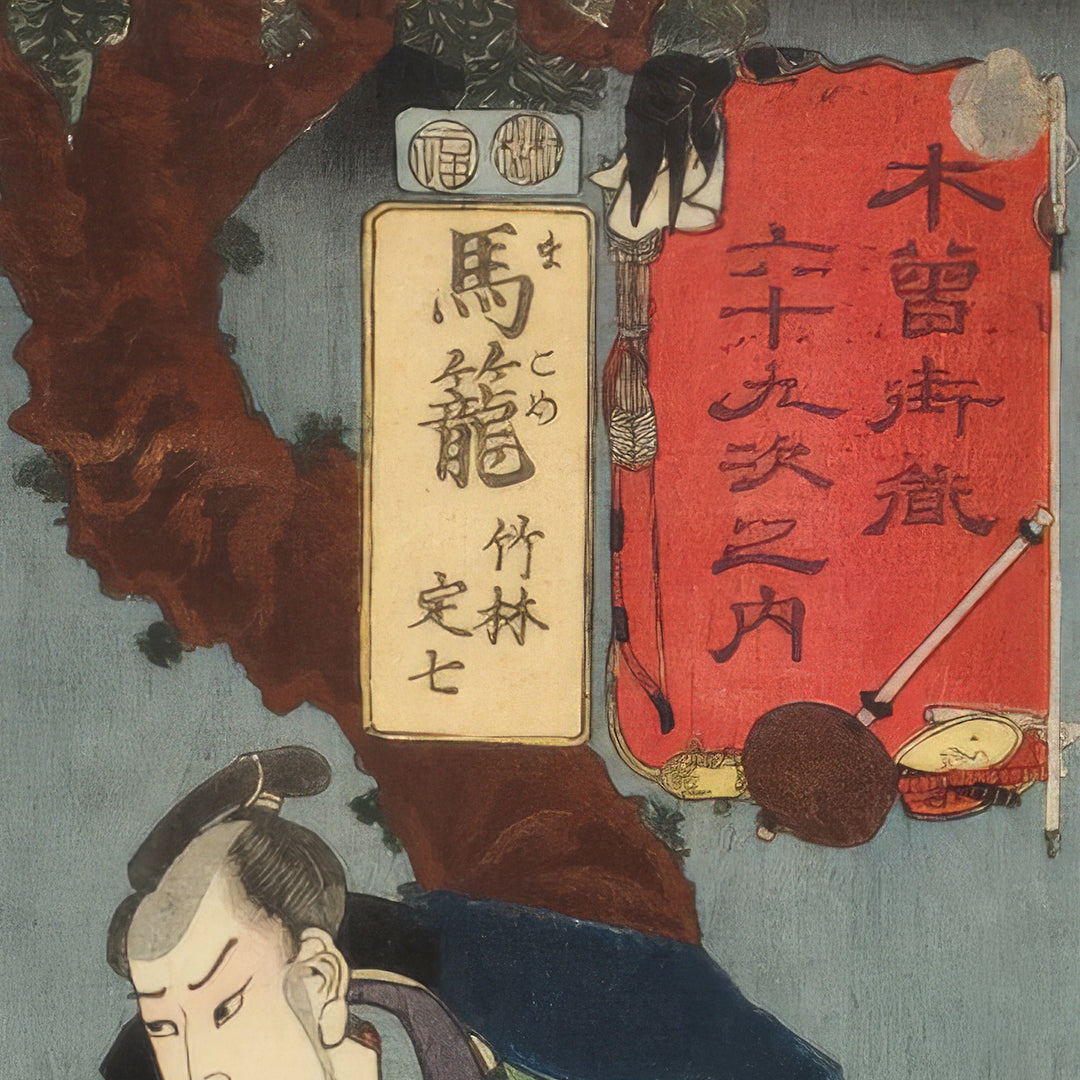 木曾街衜
六十九次之内
馬籠
まこめ
竹林
定七
福